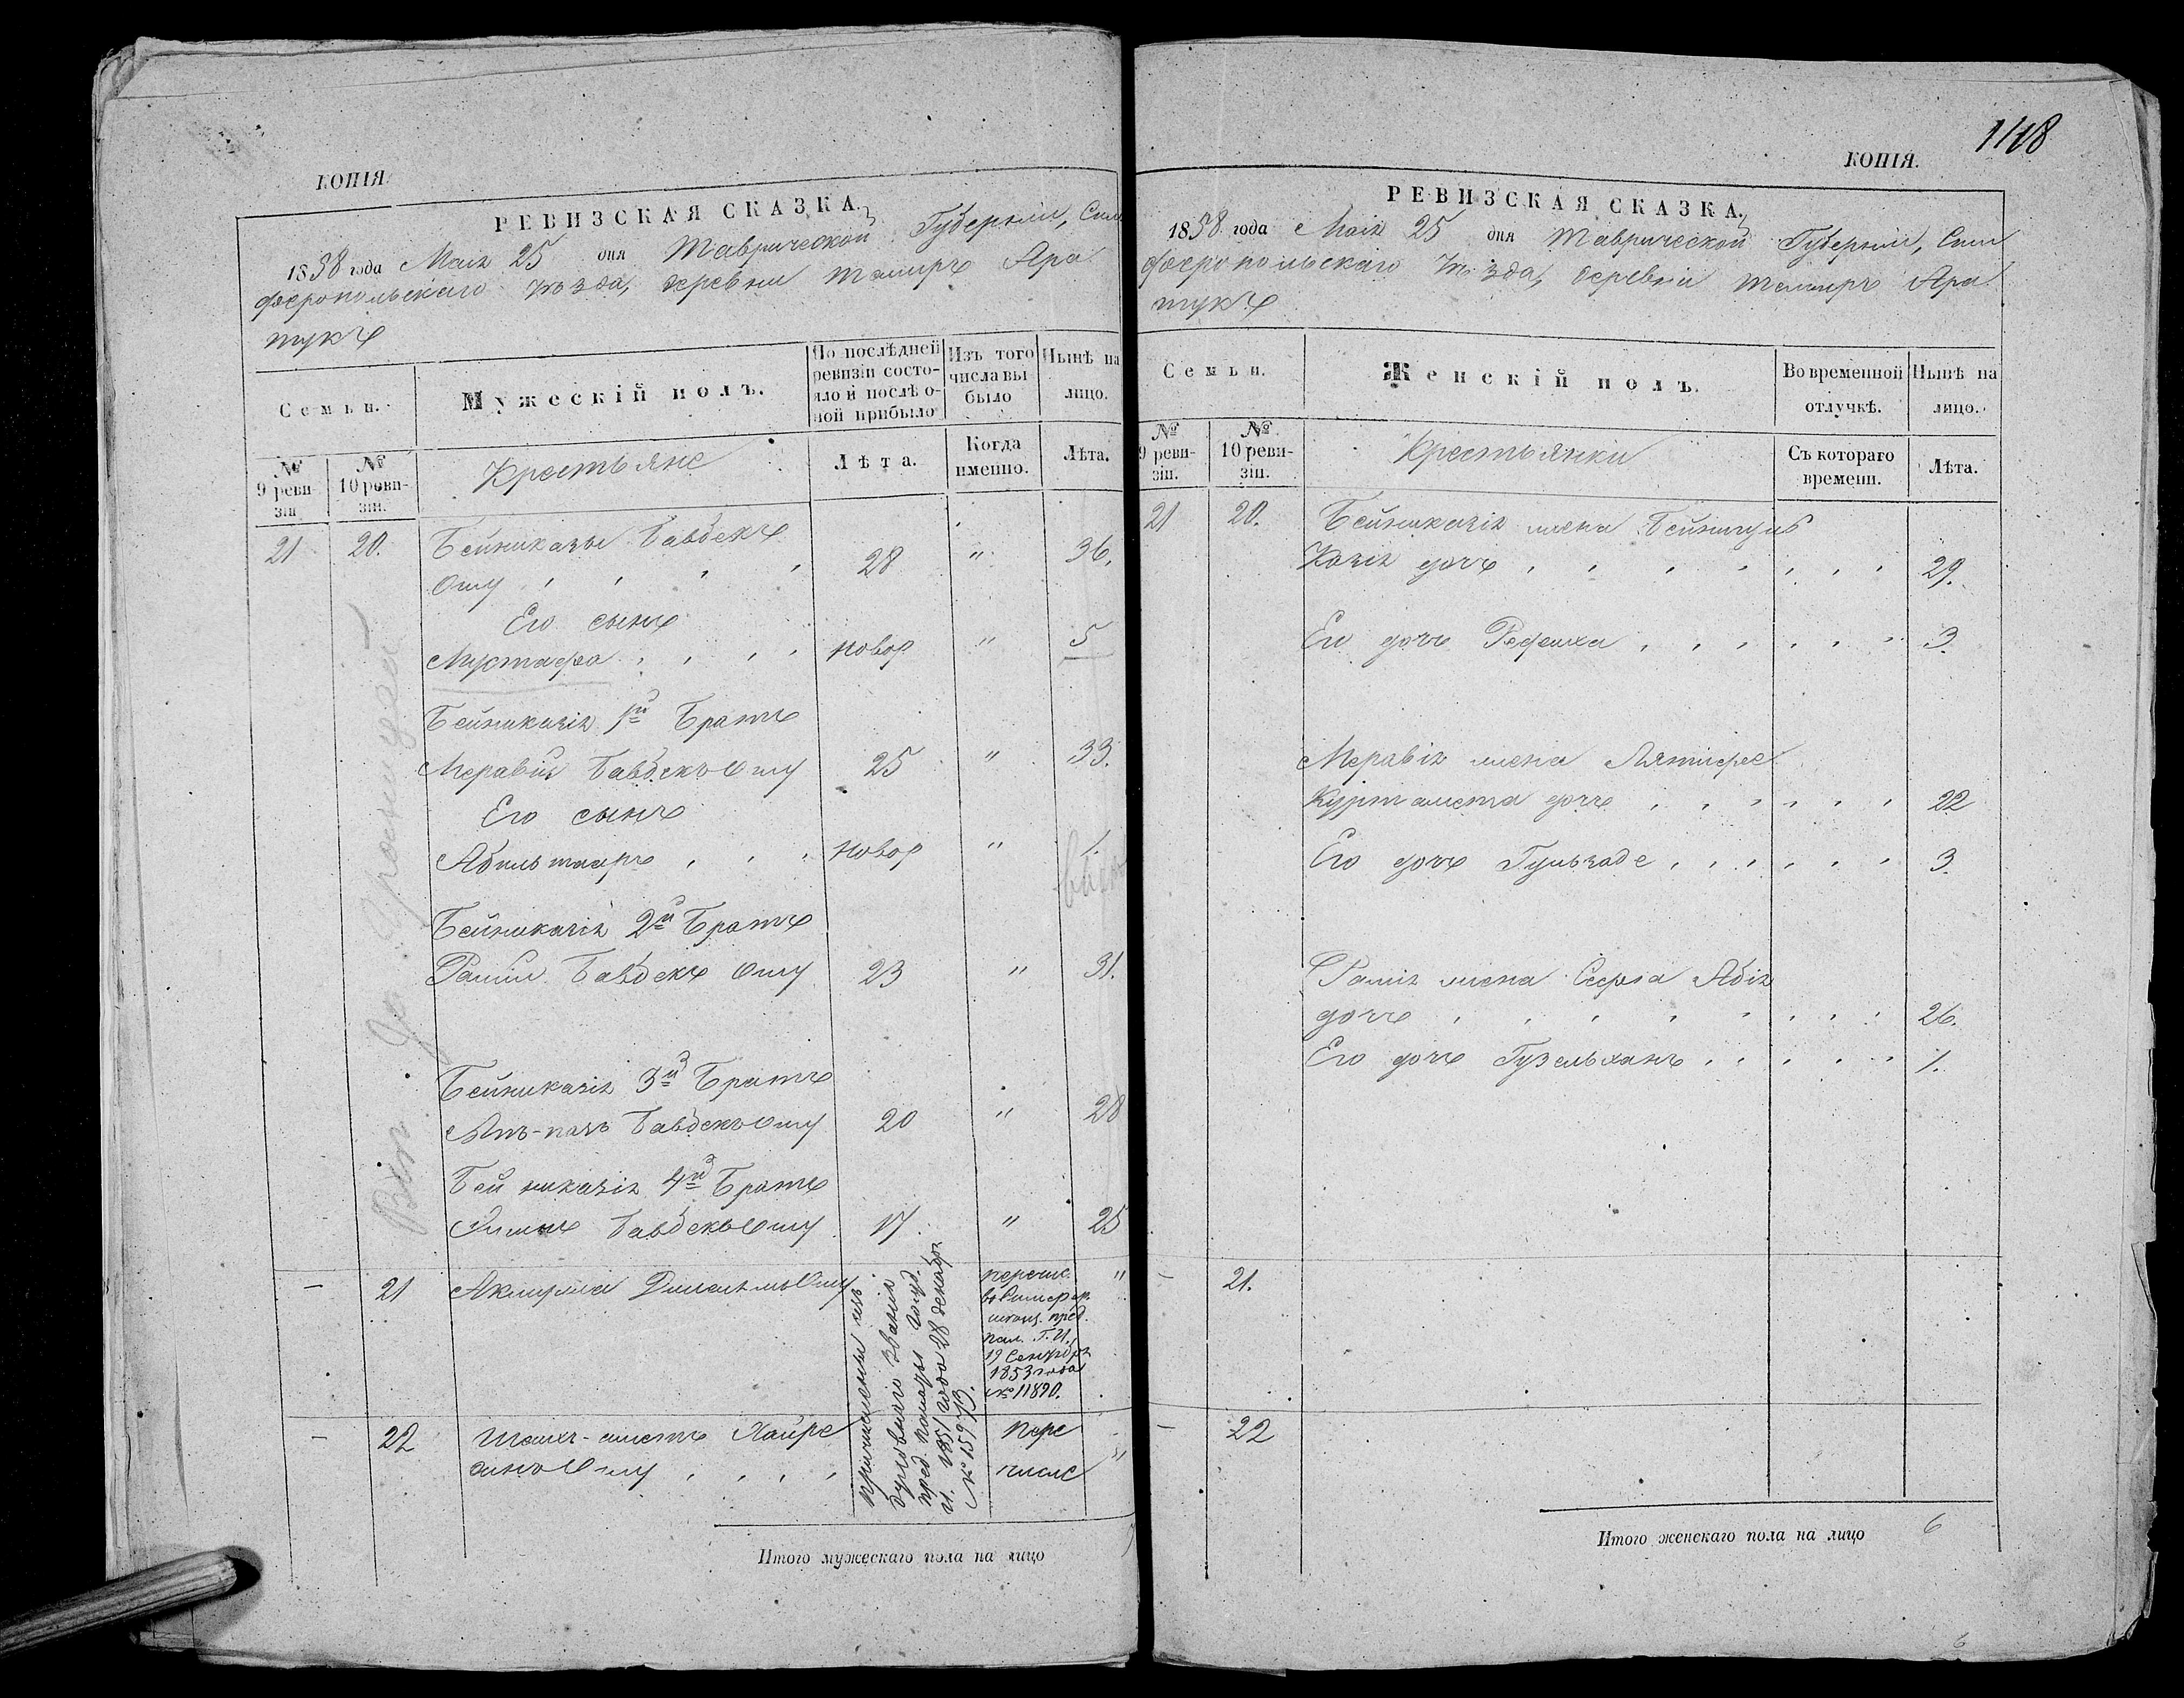 КОПІЯ.
РЕВИЗСКАЯ СКАЗКА.
1858 года Мая 25 дня Таврической Губерніи, Сим
феропольскаго уѣзда, деревни Темиръ Ара
тукъ
Семьи.
Мужескій полъ.
По послѣдней ревизіи состояло и послѣ оной прибыло
Изъ того числа выбыло
Нынѣ на лицо.
№ 9 ревизіи
№ 10 ревизіи.
Крестьяне
Лѣта.
Когда именно.
Лѣта.
21 20. Бейниказы Бавбекъ
Оглу 28 " 36.
Его сынъ
Мустафа новор " 5
Бейниказія 1й Братъ
Меравій БавбекъОглу 25 " 33.
Его сынъ
Абильтаиръ новор " 1.
Бейниказія 2й Братъ
Бавбекъ Оглу 23 " 31.
Бейниказія 3й Братъ
БавбекъОглу 20 " 28
Бейниказія 4й Братъ
БавбекъОглу 17 " 25
– 21 Акмурза
причислены изъ
званія
пред. палаты Госуд.
И. 1851 года 28 декабря
№ 15973.
перечис.
пред.
пал. Г. И.
19 Сентября
1853 года
№ 11890.
"
– 22 Хайре
Оглу
пере
числ
"
Итого мужескаго пола на лицо 7
1118
КОПІЯ.
РЕВИЗСКАЯ СКАЗКА.
1858 года Мая 25 дня Таврической Губерніи, Сим
феропольскаго уѣзда, деревни Темиръ Ара
тукъ
Семьи.
Женскій полъ.
Во временной отлучкѣ.
Нынѣ на лицо.
№ 9 ревизіи.
№ 10 ревизіи.
Крестьянки
Съ котораго времени.
Лѣта.
21 20. Бейниказія жена
Казія дочь 29.
Его дочь 3.
Меравія жена Лятифе
Куртамета дочь 22
Его дочь Гульзаде 3.
жена Абія
дочь 26.
Его дочь Гузельханъ 1.
– 21.
– 22
Итого женскаго пола на лицо 6
6